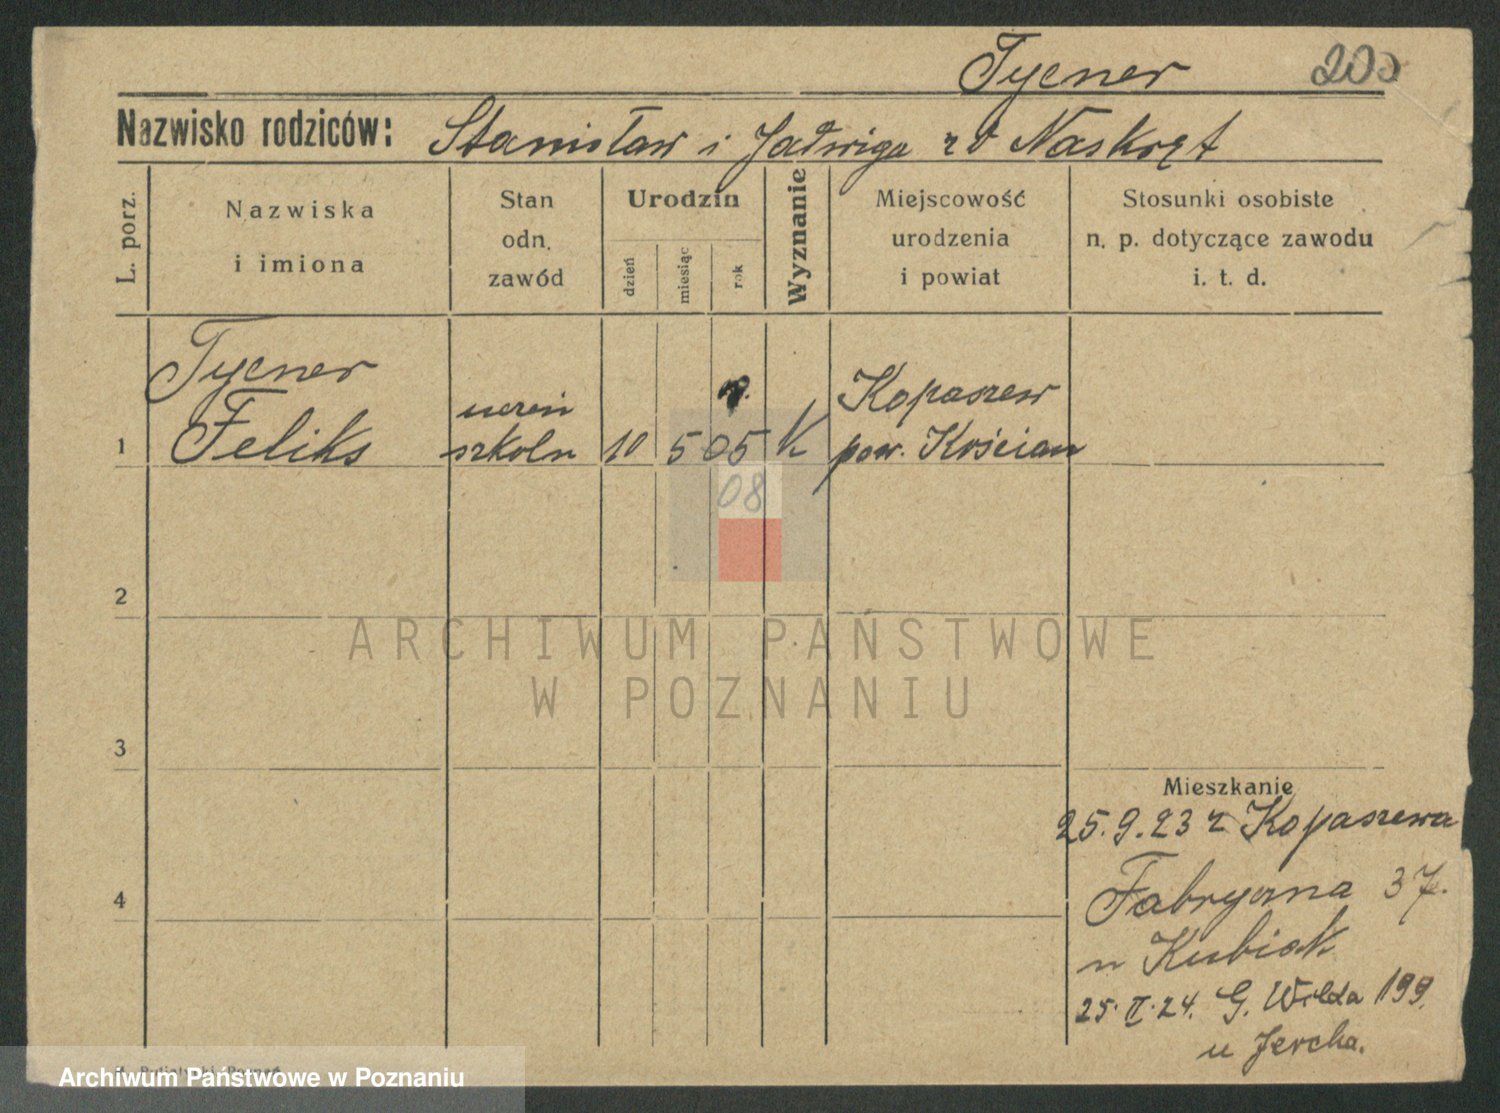 Tycner 200
Nazwisko rodziców: Stanisław i Jadwiga zd Naskręt
L. porz.
Nazwiska
i imiona
Stan
odn.
zawód
Urodzin
dzień
miesiąc
rok
Wyznanie
Miejscowość
urodzenia
i powiat
Stosunki osobiste
n. p. dotyczące zawodu
i. t. d.
1
Tycner
Feliks
uczeń
szkoln
10
5
05
08
K
Kopaszew
pow. Kościan
2
ARCHIWUM PAŃSTWOWE
W POZNANIU
3
4
Mieszkanie
25.9.23 z Kopaszewa
Fabryczna 37.
u Kubiak
25.II.24. G. Wilda 199.
u Jercha.
Archiwum Państwowe w Poznaniu